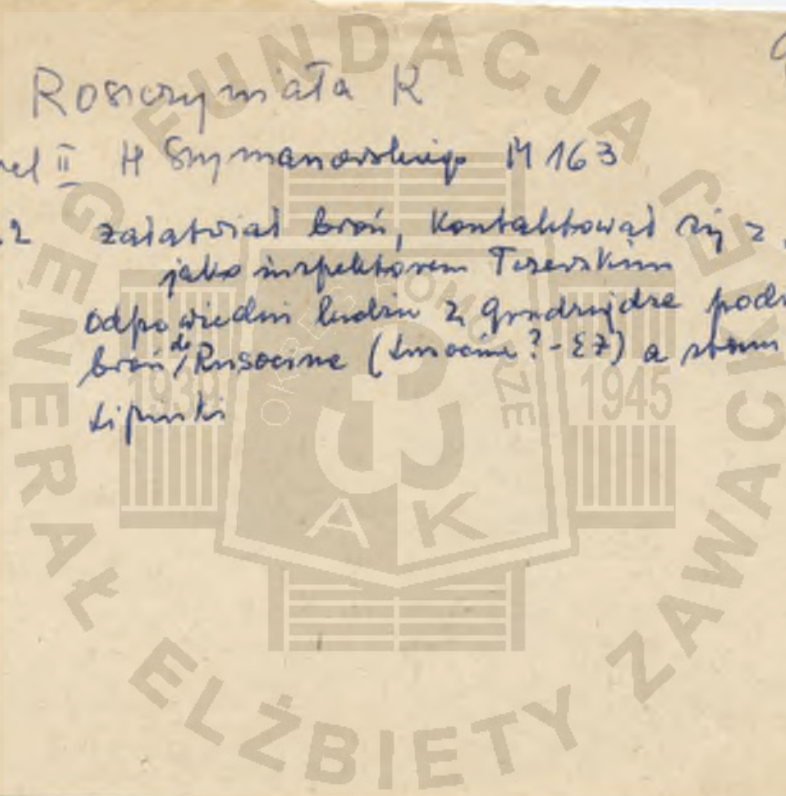 Rosiczymiała K
rel II H Szymanowskiego M 163
.2 załatwiał broń, kontaktował się z
jako inspektorem Tczewskim
odpowiedni ludzie z Grudziądza
broń do Rusocina ( ? - EZ) a
Lipinki
FUNDACJA GENERAŁ ELŻBIETY ZAWACKIEJ
OKRĘG POMORZE
1939 1945
AK